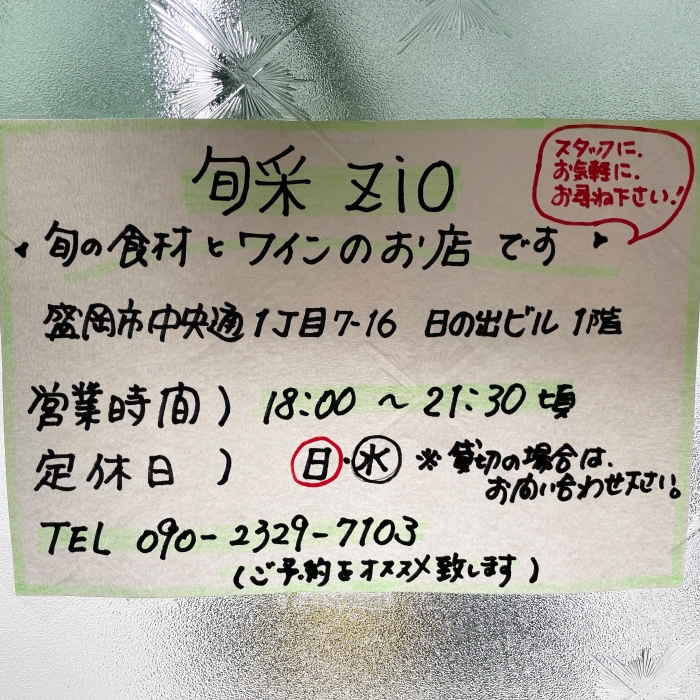 旬采 zio
スタッフに、
お気軽に、
お尋ね下さい!
旬の食材とワインのお店 です
盛岡市中央通1丁目7-16 日の出ビル 1階
営業時間) 18:00 ~ 21:30 頃
定休日 ) 日・水 ※貸切の場合は、
お問い合わせ下さい。
TEL 090-2329-7103
(ご予約をオススメ致します)